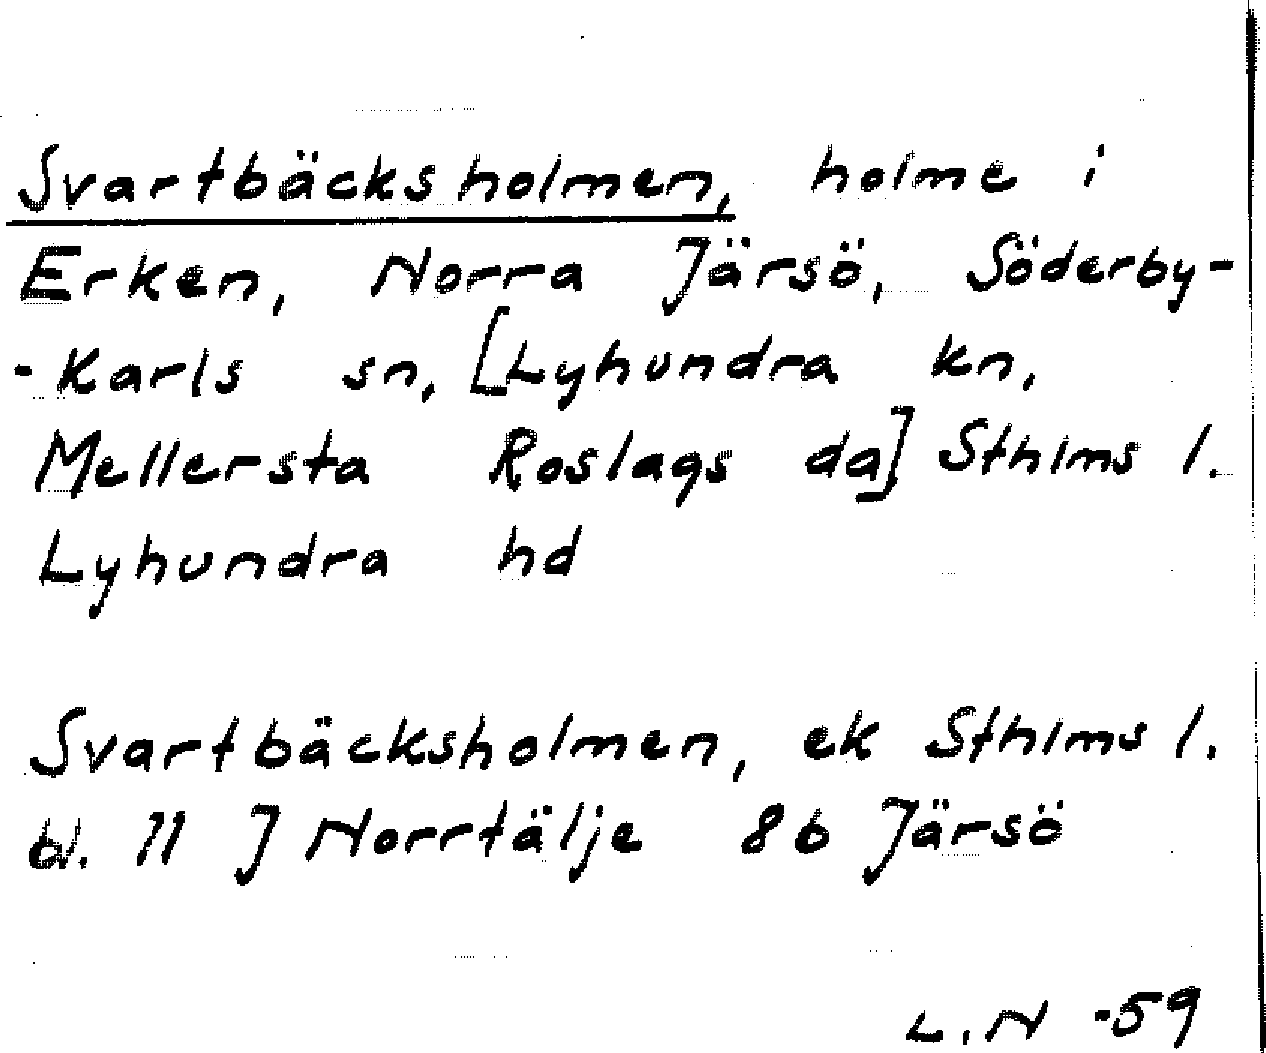 Svartbäcksholmen, holme i
Erken, Norra Järsö, Söderby-
-Karls sn, [Lyhundra kn,
Mellersta Roslags da] Sthlms l.
Lyhundra hd
Svartbäcksholmen, ek Sthlms l.
bl. 11 J Norrtälje 8b Järsö
L.N -59